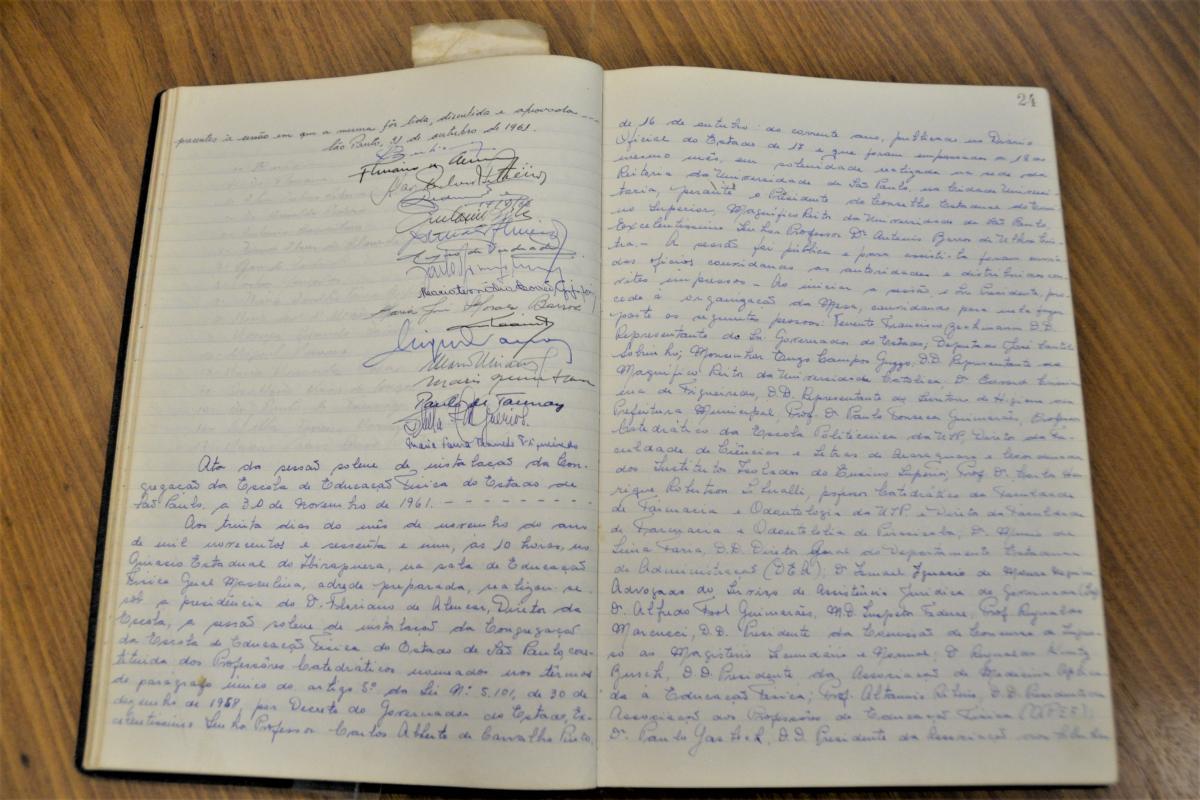 presentes à sessão em que a mesma fôr lida, discutida e aprovada
São Paulo, 31 de outubro de 1961.
Maria José Moraes Barros
Paulo de Taunay
Ata da sessão solene de instalação da Con-
gregação da Escola de Educação Física do Estado de
São Paulo, a 30 de Novembro de 1961. - - - - - - -
Aos trinta dias do mês de novembro do ano
de mil novecentos e sessenta e um, às 10 horas, no
Ginásio Estadual do Ibirapuera, na sala de Educação
Física Geral Masculina, adrede preparada, realizou-se
sob a presidência do Dr. Floriano de Alencar, Diretor da
Escola, a sessão solene de instalação da Congregação
da Escola de Educação Física do Estado de São Paulo, cons-
tituida dos Professôres Catedráticos nomeados nos têrmos
do parágrafo único do artigo 5º da Lei Nº 5.101, de 30 de
dezembro de 1958, por Decreto do Governador do Estado, Ex-
celentíssimo Senhor Professor Carlos Alberto de Carvalho Pinto,
24
de 16 de outubro do corrente ano, publicado no Diário
Oficial do Estado de 17 e que foram empossados a 18 do
mesmo mês, em solenidade realizada na sede da
Reitoria da Universidade de São Paulo, na Cidade Universi-
tária, perante o Presidente do Conselho Estadual de Ensi-
no Superior, Magnífico Reitor da Universidade de São Paulo,
Excelentíssimo Senhor Professor Dr. Antonio Barros de Ulhôa Cin-
tra. - A sessão foi pública e para assistí-la foram envia-
dos ofícios convidando as autoridades e distribuidos con-
vites impressos. - Ao iniciar a sessão, o Sr. Presidente, pro-
cede à organização da Mesa, convidando para dela fazer
parte as seguintes pessoas: Tenente Francisco D.D.
Representante do Sr. Governador do Estado; Deputado José
Sobrinho; Monsenhor Enzo Campos Gusso, D.D. Representante do
Magnífico Reitor da Universidade Católica, Dr.
de Figueiredo, D.D. Representante do Secretário de Higiene da
Prefeitura Municipal, Prof. Dr. Paulo Fonseca Guimarães, Professor
Catedrático da Escola Politécnica da USP, Diretor da Fa-
culdade de Ciências e Letras de Araraquara e Coordenador
dos Institutos Isolados do Ensino Superior, Prof. Dr. Carlos Hen-
rique Robertson Liberalli, professor Catedrático da Faculdade
de Farmácia e Odontologia da USP e Diretor da Faculdade
de Farmácia e Odontologia de Piracicaba, Dr.
Lima Faria, D.D. Diretor Geral do Departamento Estadual
de Administração (DEA); Dr. Ismael Ignacio de Moura
Advogado do Serviço de Assistência Jurídica do Governador
Dr. Alfredo Guimarães, M.D. Inspetor Federal, Prof. Reynaldo
Marcucci, D.D. Presidente da Comissão de Concurso de Ingres-
so ao Magistério Secundário e Normal; Dr. Reynaldo Kuntz
Busch, D.D. Presidente da Associação de Medicina Aplica-
da à Educação Física; Prof. Altamiro D.D. Presidente da
Associação dos Professôres de Educação Física (APEF);
Dr. Paulo D.D. Presidente da Associação dos